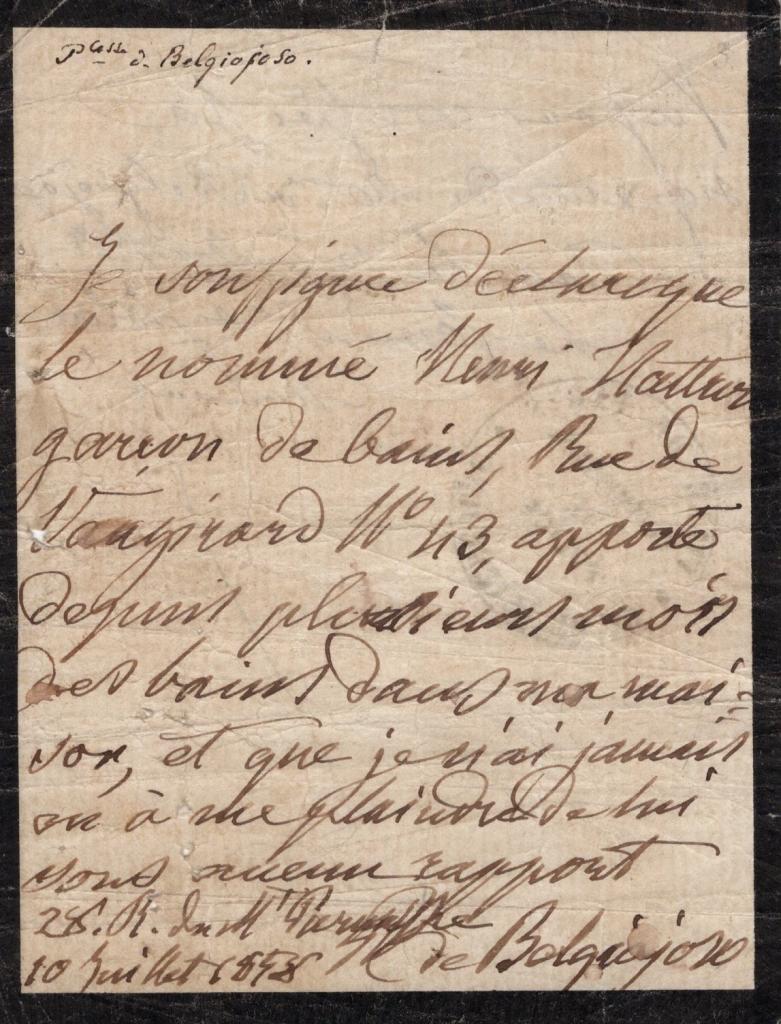 Pcesse de Belgiojoso.
Je soussignée déclare que
le nommé Henri
garçon de bains, Rue de
Vaugirard No 43, apporte
depuis plusieurs mois
des bains dans ma mai-
son, et que je n'ai jamais
eu à me plaindre de lui
sous aucun rapport
28. R. du Mt Parnasse
10 Juillet 1858 de Belgiojoso